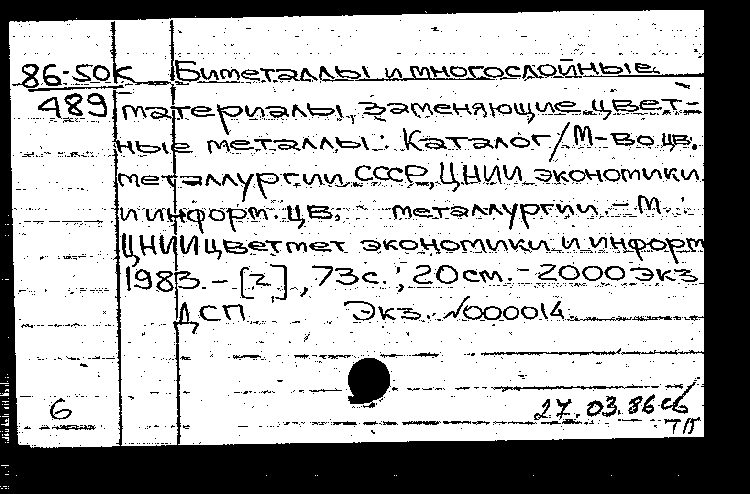 86-50К Биметаллы и многослойные
489 материалы, заменяющие цвет-
ные металлы: Каталог/М-во цв.
металлургии СССР, ЦНИИ экономики
и информ. цв. металлургии. - М.:
ЦНИИцветмет экономики и информ
1983. - [2], 73с.; 20см. - 2000экз
ДСП Экз. №000014
6 27.03.86